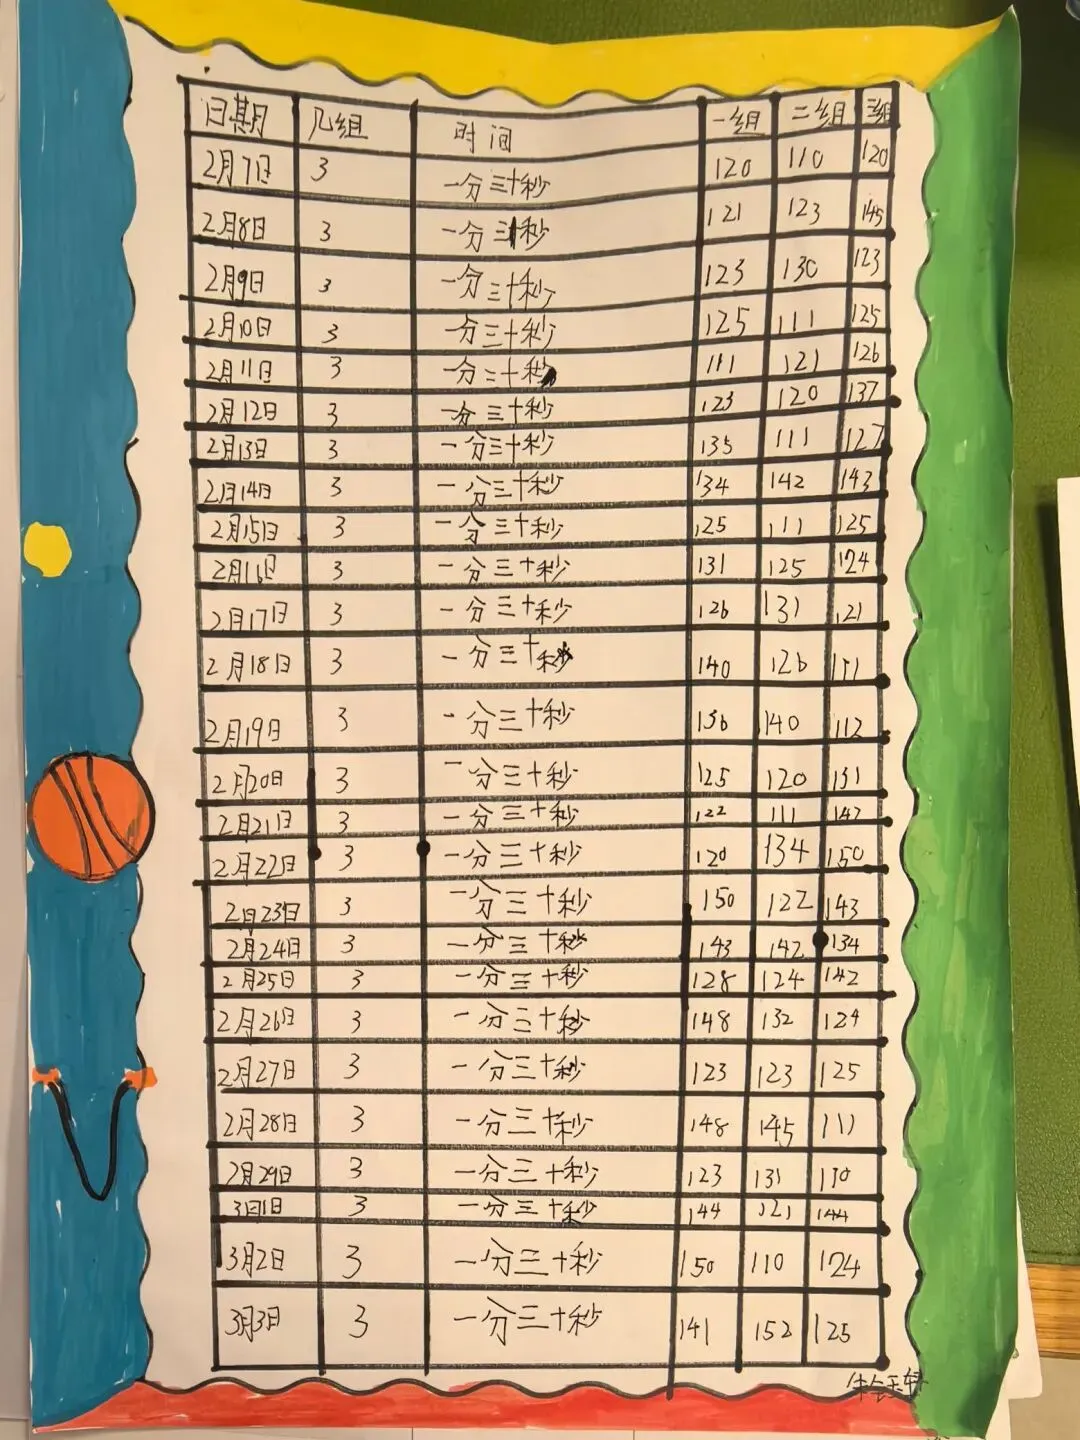 日期 几组 时间 一组 二组 三组
2月7日 3 一分三十秒 120 110 120
2月8日 3 一分三十秒 121 123 145
2月9日 3 一分三十秒 123 130 123
2月10日 3 一分三十秒 125 111 125
2月11日 3 一分三十秒 111 121 126
2月12日 3 一分三十秒 123 120 137
2月13日 3 一分三十秒 135 111 127
2月14日 3 一分三十秒 134 142 143
2月15日 3 一分三十秒 125 111 125
2月16日 3 一分三十秒 131 125 124
2月17日 3 一分三十秒 126 131 121
2月18日 3 一分三十秒 140 126
2月19日 3 一分三十秒 136 140 112
2月20日 3 一分三十秒 125 120 131
2月21日 3 一分三十秒 122 111
2月22日 3 一分三十秒 120 134 150
2月23日 3 一分三十秒 150 122 143
2月24日 3 一分三十秒 143 142 134
2月25日 3 一分三十秒 128 124 142
2月26日 3 一分三十秒 148 132 124
2月27日 3 一分三十秒 123 123 125
2月28日 3 一分三十秒 148 145 111
2月29日 3 一分三十秒 123 131 110
3月1日 3 一分三十秒 144 121 144
3月2日 3 一分三十秒 150 110 124
3月3日 3 一分三十秒 141 152 125